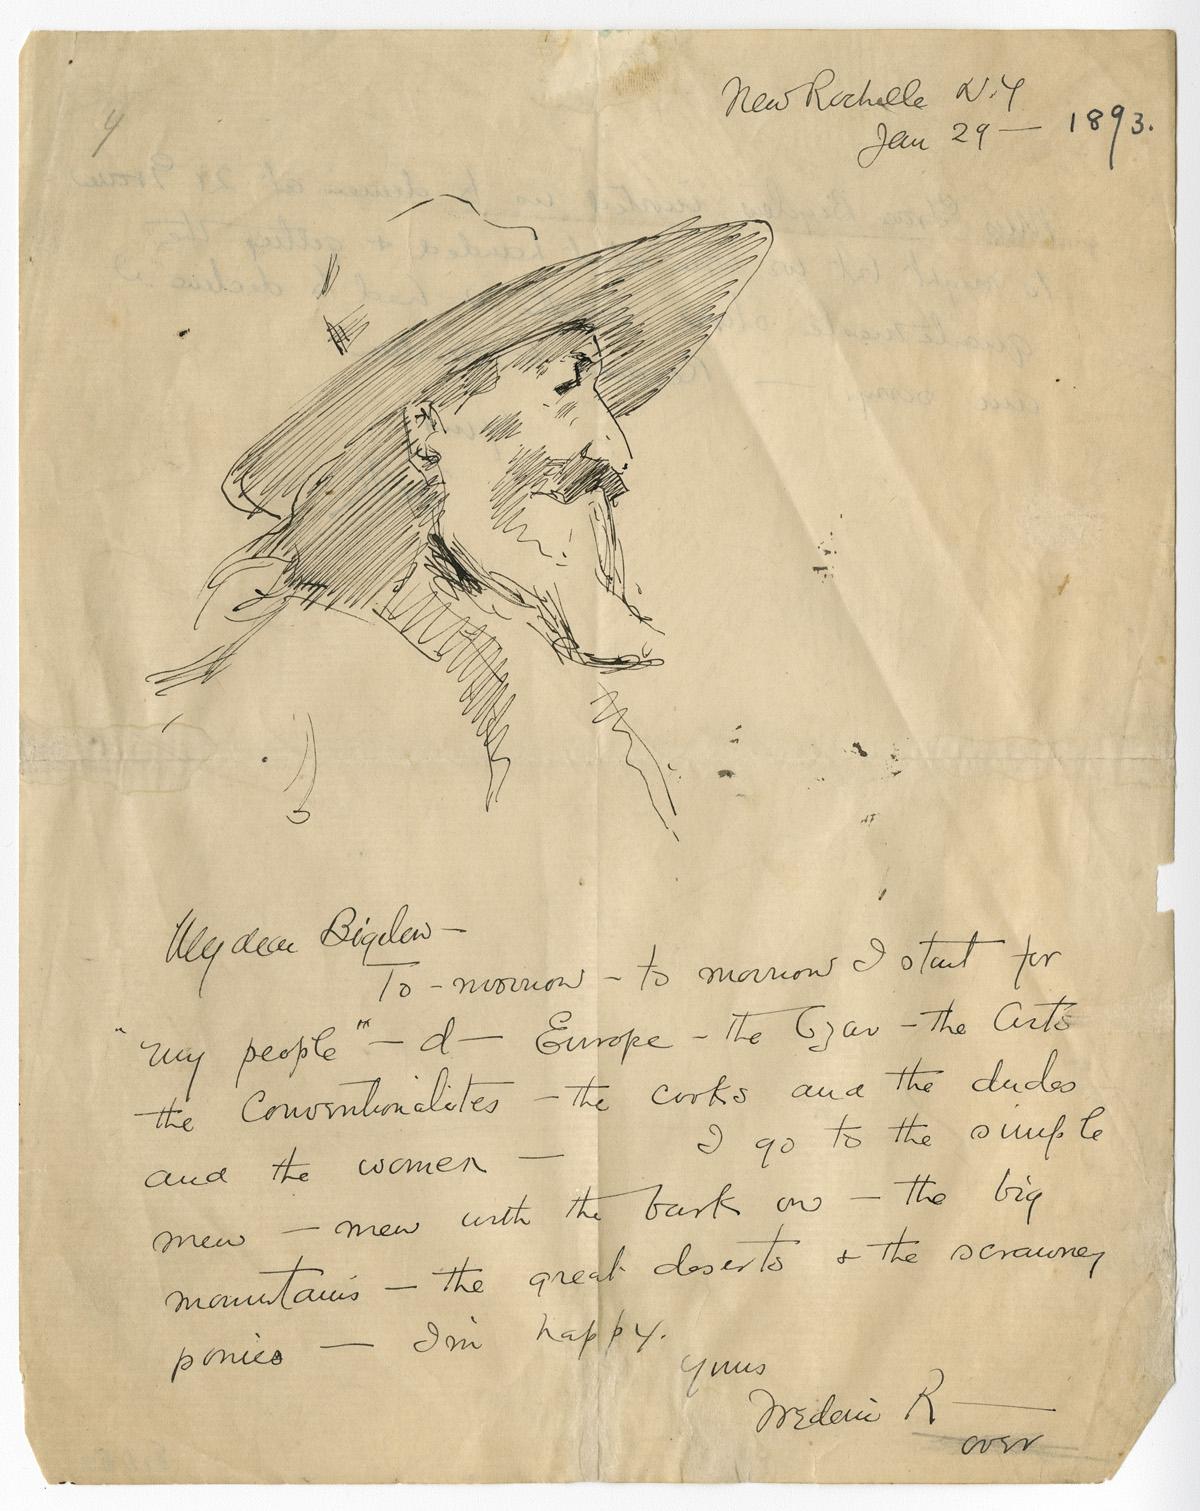 4
New Rochelle N.Y
Jan 29 — 1893.
My dear Bigelow —
To-morrow - to morrow I start for
"my people" — d — Europe - the Czar - the Arts
the Conventionalites - the cooks and the dudes
and the women — I go to the simple
men — men with the bark on — the big
mountains — the great deserts & the scrawney
ponies — I'm happy.
yours
Frederic R —
over